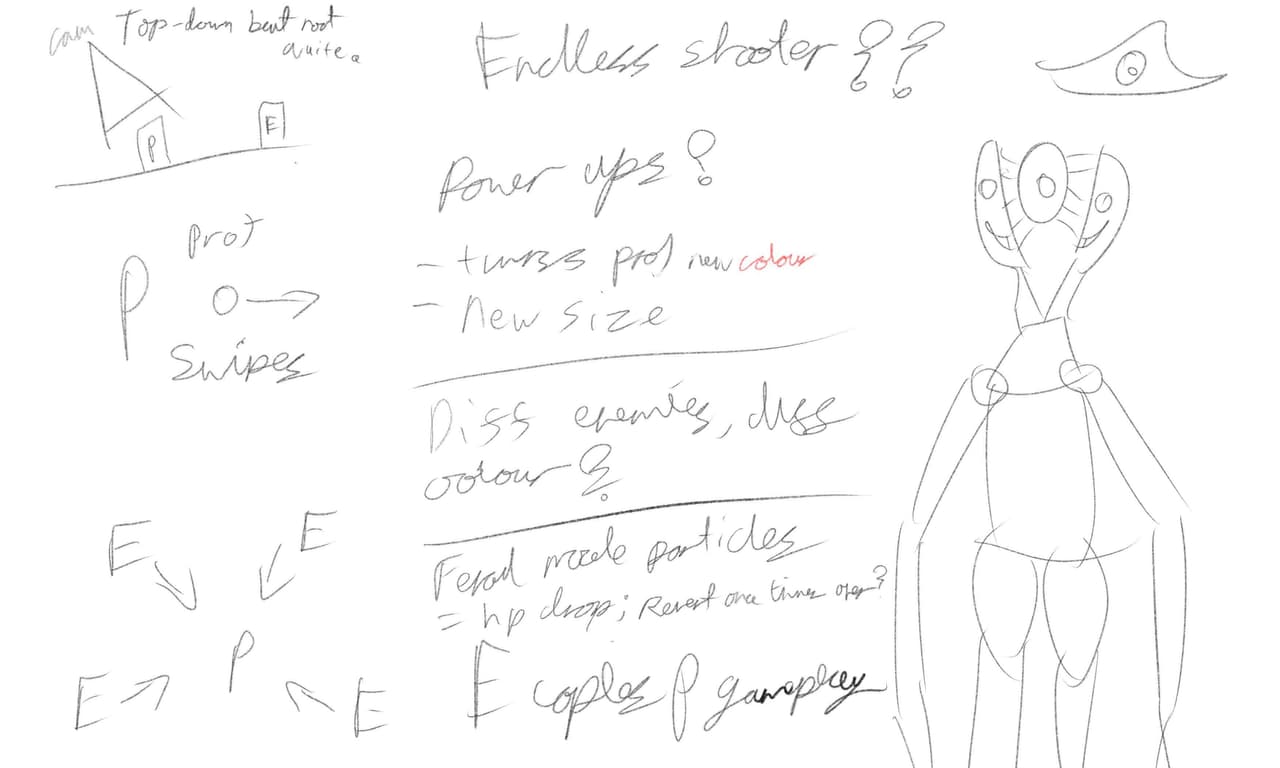 cam Top-down but not
quite.
P
E
Endless shooter??
Power ups?
- turns proj new colour
- New size
Proj
P O →
Swipes
Diff enemies, diff
colour?
E
E
P
E
E
mode particles
= hp drop; Revert once timer over?
E copies P gameplay